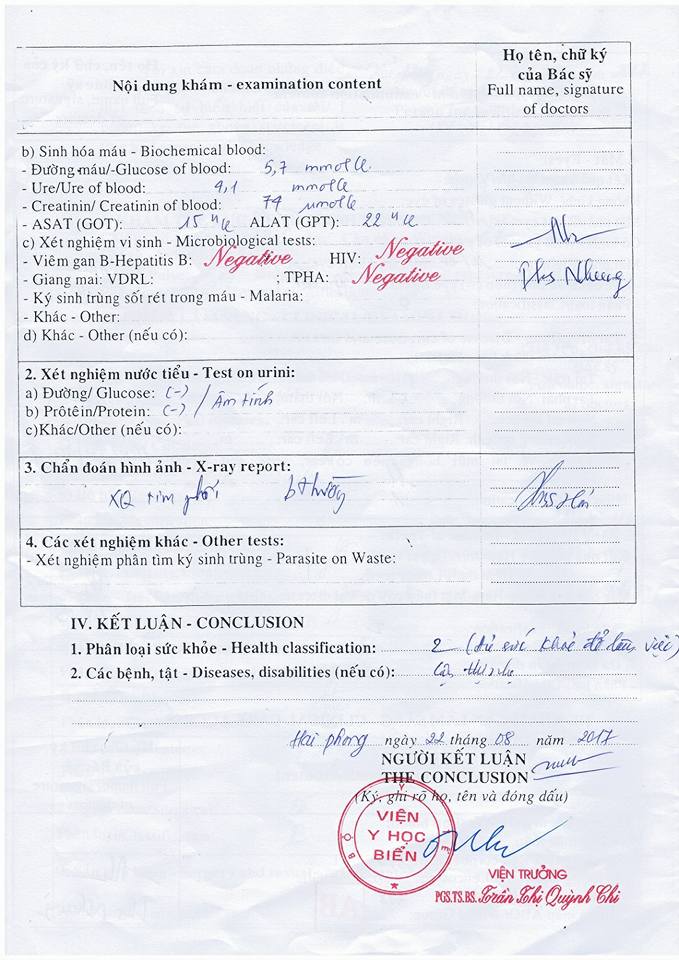 Nội dung khám - examination content
Họ tên, chữ ký
của Bác sỹ
Full name, signature
of doctors
b) Sinh hóa máu - Biochemical blood:
- Đường máu/-Glucose of blood: 5,7 mmol/l
- Ure/Ure of blood: 4,1 mmol/l
- Creatinin/ Creatinin of blood: 74 µmol/l
- ASAT (GOT): 15 u/l ALAT (GPT): 22 u/l
c) Xét nghiệm vi sinh - Microbiological tests:
- Viêm gan B-Hepatitis B: Negative HIV: Negative
- Giang mai: VDRL: ; TPHA: Negative
Nhung
- Ký sinh trùng sốt rét trong máu - Malaria:
- Khác - Other:
d) Khác - Other (nếu có):
2. Xét nghiệm nước tiểu - Test on urini:
a) Đường/ Glucose: (-)
b) Prôtêin/Protein: (-) / Âm tính
c)Khác/Other (nếu có):
3. Chẩn đoán hình ảnh - X-ray report:
XQ tim phổi bthường
4. Các xét nghiệm khác - Other tests:
- Xét nghiệm phân tìm ký sinh trùng - Parasite on Waste:
IV. KẾT LUẬN - CONCLUSION
1. Phân loại sức khỏe - Health classification: 2 (đủ sức khoẻ để làm việc)
2. Các bệnh, tật - Diseases, disabilities (nếu có): Cận thị nhẹ
Hải phòng ngày 22 tháng 08 năm 2017
NGƯỜI KẾT LUẬN
THE CONCLUSION
(Ký, ghi rõ họ, tên và đóng dấu)
BỘ Y TẾ
VIỆN
Y HỌC
BIỂN
VIỆN TRƯỞNG
PGS.TS.BS. Trần Thị Quỳnh Chi